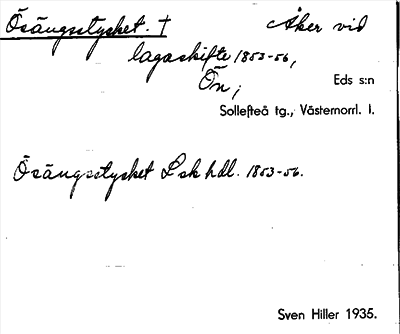 Ösängsstycket. † Åker vid
lagaskifte 1853-56,
Ön; Eds s:n
Sollefteå tg., Västernorrl. l.
Ösängsstycket L sk hdl. 1853-56.
Sven Hiller 1935.